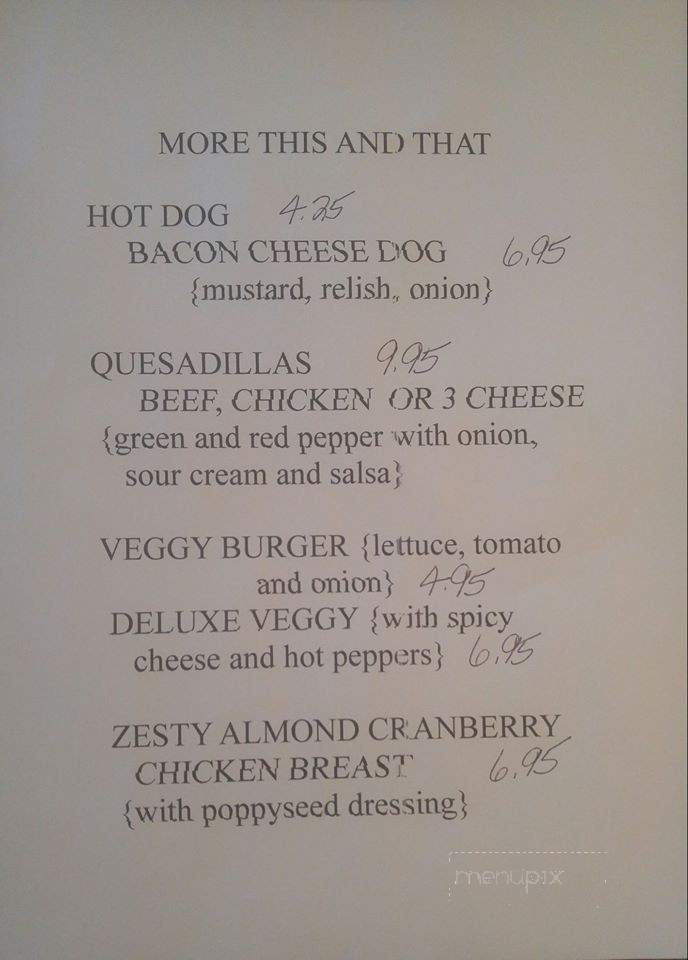 MORE THIS AND THAT
HOT DOG 4.25
BACON CHEESE DOG 6.95
{mustard, relish, onion}
QUESADILLAS 9.95
BEEF, CHICKEN OR 3 CHEESE
{green and red pepper with onion,
sour cream and salsa}
VEGGY BURGER {lettuce, tomato
and onion} 4.95
DELUXE VEGGY {with spicy
cheese and hot peppers} 6.95
ZESTY ALMOND CRANBERRY
CHICKEN BREAST 6.95
{with poppyseed dressing}
menupix